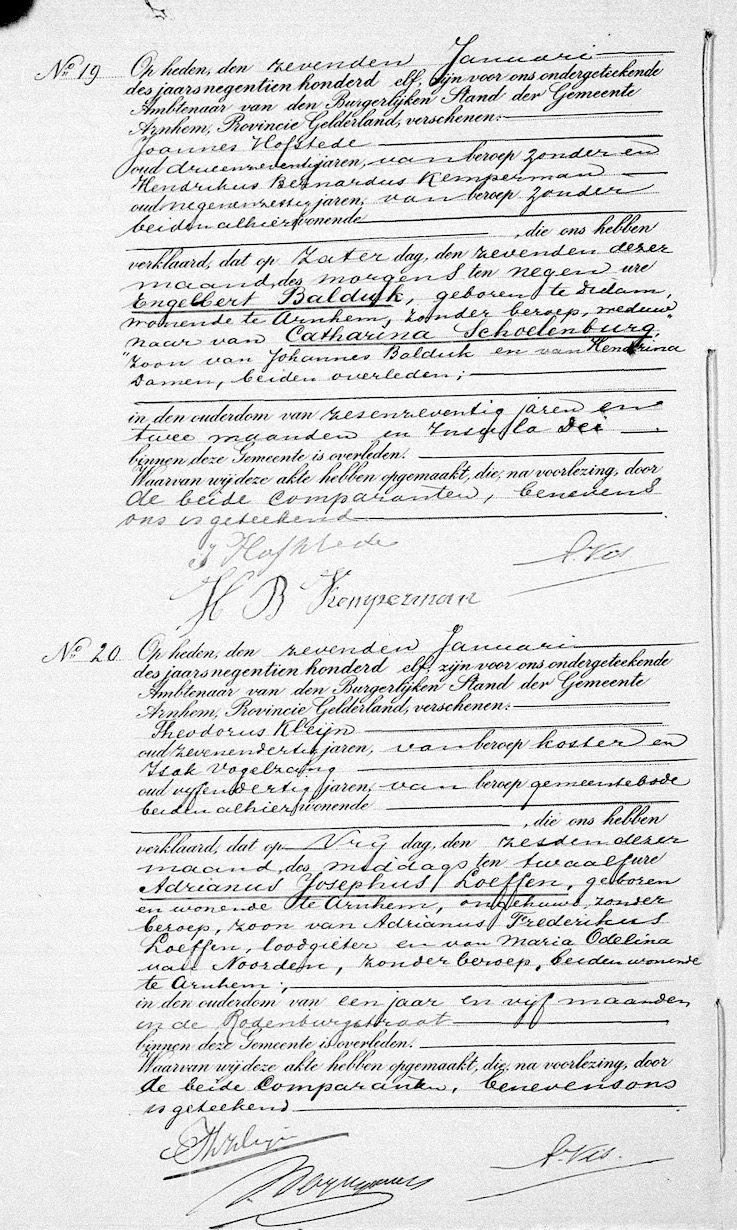 No 19 Op heden, den zevenden Januari
des jaars negentien honderd elf, zijn voor ons ondergeteekende
Ambtenaar van den Burgerlijken Stand der Gemeente
Arnhem, Provincie Gelderland, verschenen:
Joannes Hofstede
oud drieenzeventig jaren, van beroep zonder en
Hendrikus Bernardus Kemperman
oud negenenzestig jaren, van beroep zonder
beiden alhier wonende
, die ons hebben
verklaard, dat op Zater dag, den zevenden dezer
maand, des morgens ten negen ure
Engelbert Balduk, geboren te Didam,
wonende te Arnhem, zonder beroep, weduw"
"naar van Catharina Schoelenburg,
zoon van Johannes Balduk en van Hendrina
Damen, beiden overleden;
in den ouderdom van zesenzeventig jaren en
twee maanden in Insula Dei
binnen deze Gemeente is overleden.
Waarvan wij deze akte hebben opgemaakt, die, na voorlezing, door
de beide comparanten, benevens
ons is geteekend
J Hofstede
A. Vis
H B Kemperman
No 20 Op heden, den zevenden Januari
des jaars negentien honderd elf, zijn voor ons ondergeteekende
Ambtenaar van den Burgerlijken Stand der Gemeente
Arnhem, Provincie Gelderland, verschenen:
Theodorus Kleijn
oud zevenendertig jaren, van beroep koster en
Izak Vogelzang
oud vijfendertig jaren, van beroep gemeentebode
beiden alhier wonende
, die ons hebben
verklaard, dat op Vrij dag, den zesden dezer
maand, des middags ten twaalf ure
Adrianus Josephus Loeffen, geboren
en wonende te Arnhem, ongehuwd, zonder
beroep, zoon van Adrianus Frederikus
Loeffen, loodgieter en van Maria Odelina
van Noorden, zonder beroep, beiden wonende
te Arnhem;
in den ouderdom van een jaar en vijf maanden
in de Rodenburgstraat
binnen deze Gemeente is overleden.
Waarvan wij deze akte hebben opgemaakt, die, na voorlezing, door
de beide Comparanten, benevens ons
is geteekend
A. Vis.